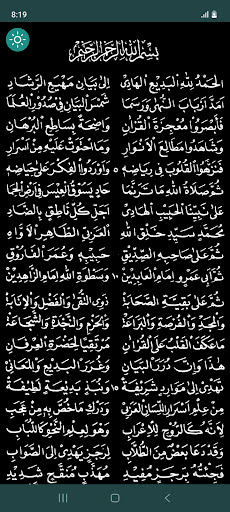 8:19
بسم الله الرحمن الرحيم
الحَمْدُ لِلَّهِ البَدِيعِ الهَادِي إِلَى بَيَانِ مَهْيَعِ الرَّشَادِ
أَمَدَّ أَرْبَابَ النُّهَى وَرَسَمَا شَمْسَ البَيَانِ فِي صُدُورِ العُلَمَا
فَأَبْصَرُوا مُعْجِزَةَ القُرْآنِ وَاضِحَةً بِسَاطِعِ البُرْهَانِ
وَشَاهَدُوا مَطَالِعَ الأَنْوَارِ وَمَا احْتَوَتْ عَلَيْهِ مِنْ أَسْرَارِ
فَنَزَّهُوا القُلُوبَ فِي رِيَاضِهِ ٥ وَأَوْرَدُوا الفِكْرَ عَلَى حِيَاضِهِ
ثُمَّ صَلَاةُ اللهِ مَا تَرَنَّمَا حَادٍ يَسُوقُ العِيسَ فِي أَرْضِ الحِمَى
عَلَى نَبِيِّنَا الحَبِيبِ الهَادِي أَجَلِّ كُلِّ نَاطِقٍ بِالضَّادِ
مُحَمَّدٍ سَيِّدِ خَلْقِ اللهِ العَرَبِيِّ الطَّاهِرِ الأَوَّاهِ
ثُمَّ عَلَى صَاحِبِهِ الصِّدِّيقِ حَبِيبِهِ وَعُمَرَ الفَارُوقِ
ثُمَّ أَبِي عَمْرٍو إِمَامِ العَابِدِينْ ١٠ وَسَطْوَةِ اللهِ إِمَامِ الزَّاهِدِينْ
ثُمَّ عَلَى بَقِيَّةِ الصَّحَابَةِ ذَوِي التُّقَى وَالفَضْلِ وَالإِنَابَةِ
وَالمَجْدِ وَالفُرْصَةِ وَالبَرَاعَةِ وَالحَزْمِ وَالنَّجْدَةِ وَالشَّجَاعَةِ
مَا عَكَفَ القَلْبُ عَلَى القُرْآنِ مُرْتَقِيًا لِحَضْرَةِ العِرْفَانِ
هَذَا وَإِنَّ دُرَرَ البَيَانِ وَغُرَرَ البَدِيعِ وَالمَعَانِي
تَهْدِي إِلَى مَوَارِدَ شَرِيفَةٍ ١٥ وَنُبَذٍ بَدِيعَةٍ لَطِيفَةٍ
مِنْ عِلْمِ أَسْرَارِ اللِّسَانِ العَرَبِي وَدَرْكِ مَا خُصَّ بِهِ مِنْ عَجَبِ
لِأَنَّهُ كَالرُّوحِ لِلْإِعْرَابِ وَهْوَ لِعِلْمِ النَّحْوِ كَاللُّبَابِ
وَقَدْ دَعَا بَعْضٌ مِنَ الطُّلَّابِ لِرَجَزٍ يَهْدِي إِلَى الصَّوَابِ
فَجِئْتُهُ بِرَجَزٍ مُفِيدٍ مُهَذَّبٍ مُنَقَّحٍ سَدِيدِ